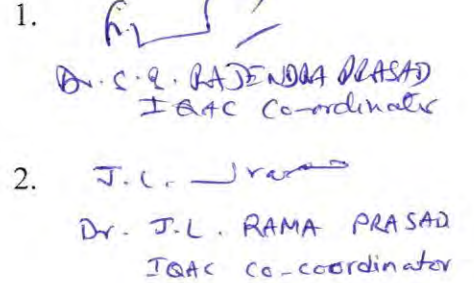 1.
Dr. S. R. RAJENDRA PRASAD
IQAC Co-ordinator
2. J. L.
Dr. J.L. RAMA PRASAD
IQAC Co-coordinator